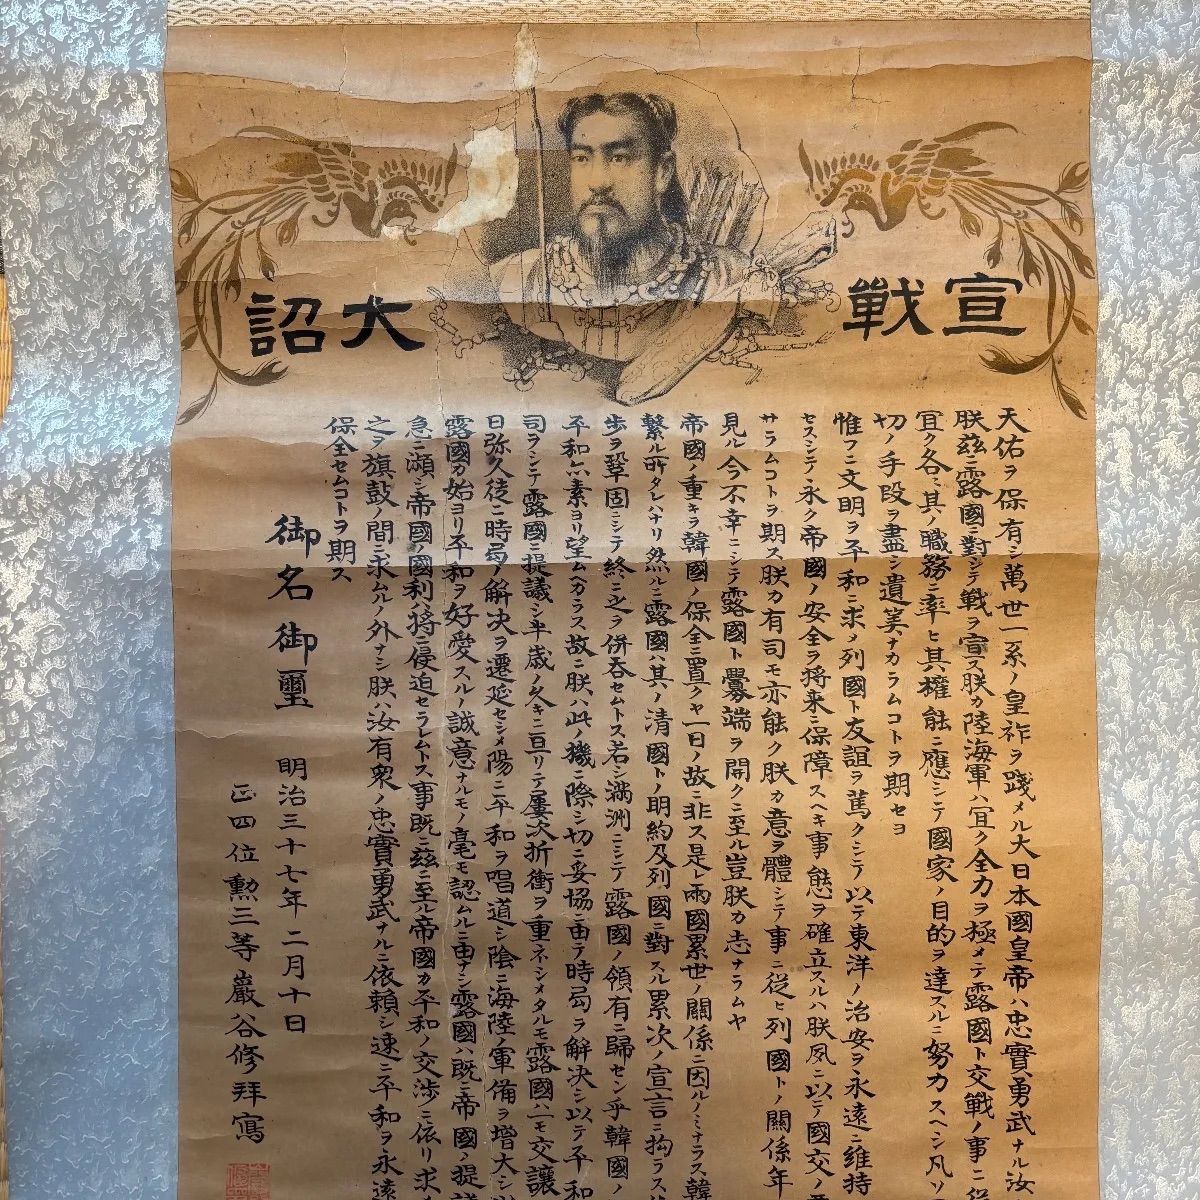 宣戰
大詔
天佑ヲ保有シ萬世一系ノ皇祚ヲ踐メル大日本國皇帝ハ忠實勇武ナル汝
朕茲ニ露國ニ對シテ戰ヲ宣ス朕カ陸海軍ハ宜ク全力ヲ極メテ露國ト交戰ノ事ニ從
宜ク各〻其ノ職務ニ率ヒ其ノ權能ニ應シテ國家ノ目的ヲ達スルニ努力スヘシ凡ソ
切ノ手段ヲ盡シ遺筭ナカラムコトヲ期セヨ
惟フニ文明ヲ平和ニ求メ列國ト友誼ヲ篤クシテ以テ東洋ノ治安ヲ永遠ニ維持
セスシテ永ク帝國ノ安全ヲ將来ニ保障スヘキ事態ヲ確立スルハ朕夙ニ以テ國交ノ
サラムコトヲ期ス朕カ有司モ亦能ク朕カ意ヲ體シテ事ニ從ヒ列國トノ關係年
見ル今不幸ニシテ露國ト釁端ヲ開クニ至ル豈朕カ志ナラムヤ
帝國ノ重キヲ韓國ノ保全ニ置クヤ一日ノ故ニ非ス是レ兩國累世ノ關係ニ因ルノミナラス韓
繫ル所タレハナリ然ルニ露國ハ其ノ清國トノ明約及列國ニ對スル累次ノ宣言ニ拘ラス
歩ヲ鞏固ニシテ終ニ之ヲ併呑セムトス若シ滿洲ニシテ露國ノ領有ニ歸セン乎韓國ノ
平和亦素ヨリ望ムヘカラス故ニ朕ハ此ノ機ニ際シ切ニ妥協ニ由テ時局ヲ解決シ以テ平和
司ヲシテ露國ニ提議シ半歳ノ久キニ亘リテ屢次折衝ヲ重ネシメタルモ露國ハ一モ交讓
日弥久徒ニ時局ノ解決ヲ遷延セシメ陽ニ平和ヲ唱道シ陰ニ海陸ノ軍備ヲ增大シ
露國カ始ヨリ平和ヲ好愛スルノ誠意ナルモノ毫モ認ムルニ由ナシ露國ハ既ニ帝國ノ提議
急ニ瀕シ帝國ノ國利ハ將ニ侵迫セラレムトス事既ニ茲ニ至ル帝國カ平和ノ交渉ニ依リ求
之ヲ旗鼓ノ間ニ求ムルノ外ナシ朕ハ汝有衆ノ忠實勇武ナルニ依頼シ速ニ平和ヲ永遠
保全セムコトヲ期ス
御名御璽
明治三十七年二月十日
正四位勲三等巖谷修拜寫